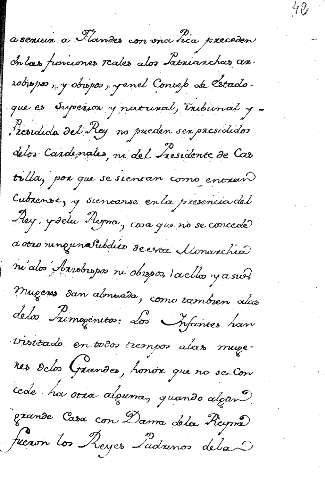 42
a servir a Flandes con una Pica preceden
en las funciones reales alos Patriarchas, ar-
zobispos, y obispos, y en el Consejo de Estado-
que es Superior y natural, Tribunal y -
Presidido del Rey no pueden ser presididos
delos Cardenales, ni del Presidente de Cas
tilla, por que se sientan como entran
Cubrense, y sientanse en la presencia del
Rey, y dela Reyna, cosa que no se concede
a otro ningun Subdito de esta Monarchia
ni alos Arzobispos ni obispos, a ellos y a sus
Mugeres dan almoada, como tambien alas
delos Primogenitos: Los Infantes han
visitado en todos tiempos alas muge-
res delos Grandes, honor que no se Con
cede ha otra alguna, quando algun
grande Casa con Dama dela Reyna
fueron los Reyes Padrinos dela